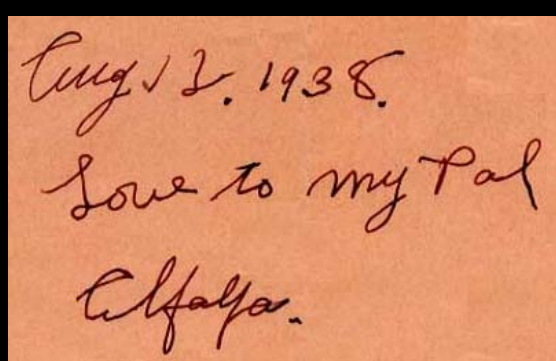 Aug 12. 1938.
Love to my Pal
Alfalfa.